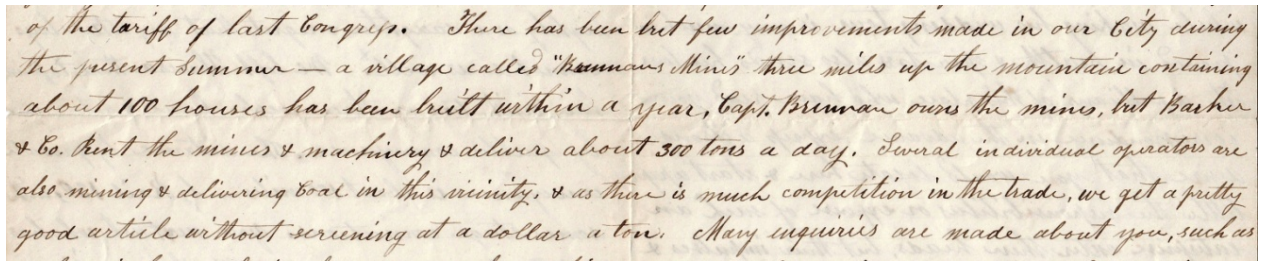 of the tariff of last Congress. There has been but few improvements made in our City during
the present Summer — a village called "Brennans Mines" three miles up the mountain containing
about 100 houses has been built within a year, Capt. Brennan owns the mines, but Barker
& Co. Rent the mines & machinery & deliver about 300 tons a day. Several individual operators are
also mining & delivering Coal in this vicinity, & as there is much competition in the trade, we get a pretty
good article without screening at a dollar a ton. Many enquiries are made about you, such as